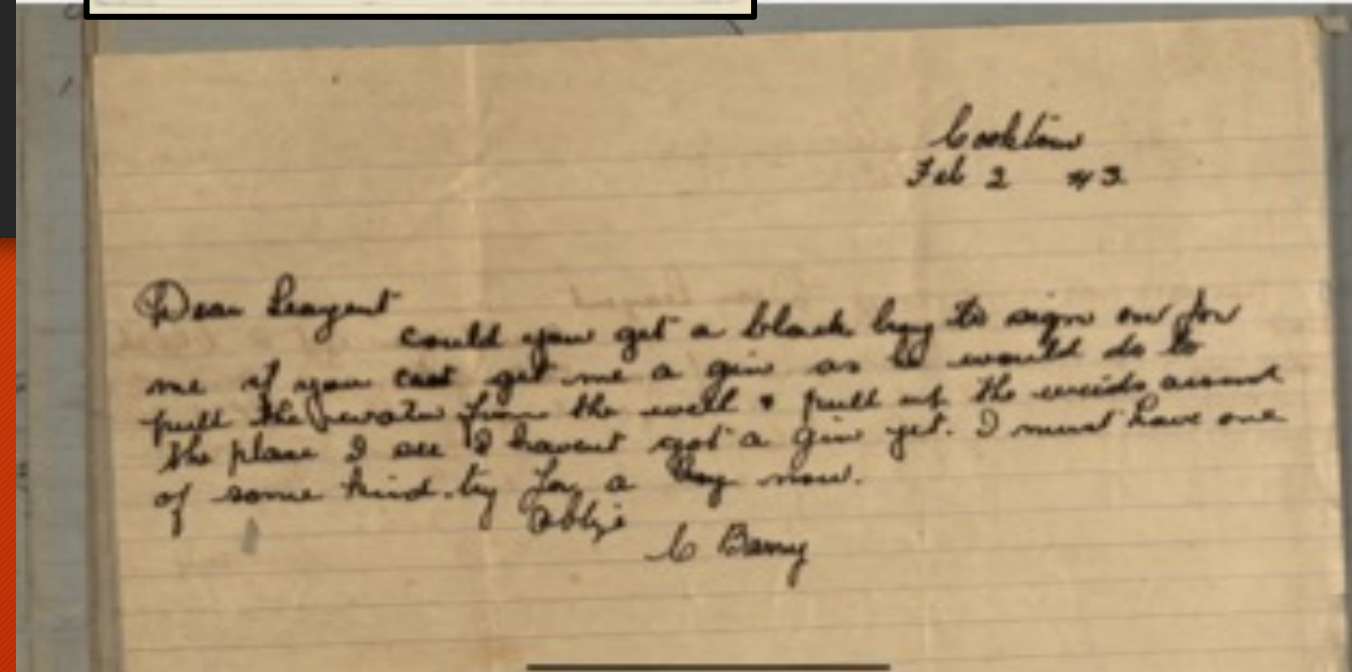 Cooktown
Feb 2 43
Dear Seargent
could you get a black boy to sign on for
me if you cant get me a gin as he would do to
pull the water from the well & pull up the weeds around
the place I see I havent got a gin yet. I must have one
of some kind. try for a Boy now.
Oblige
C Barry